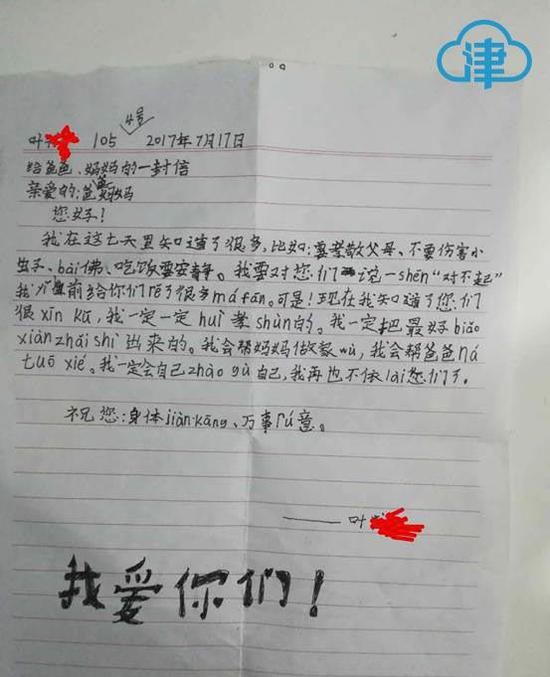 津
4号
叶 105 2017年7月17日
给爸爸、妈妈的一封信
亲爱的:爸爸妈妈
您好!
我在这七天里知道了很多,比如:要孝敬父母、不要伤害小
虫子、bài佛、吃饭要安静。我要对您们说一shēn“对不起”
我以前给你们店了很多má fan。可是!现在我知道了您们
很xīn kǔ,我一定一定huì孝shùn的。我一定把最好biǎo
xiàn zhǎi shì出来的。我会帮妈妈做家wù,我会帮爸爸ná
tuō xié。我一定会自己zhào gù自己,我再也不依lài您们了。
祝您:身体jiàn·kāng、万事rú意。
——叶
我爱你们!